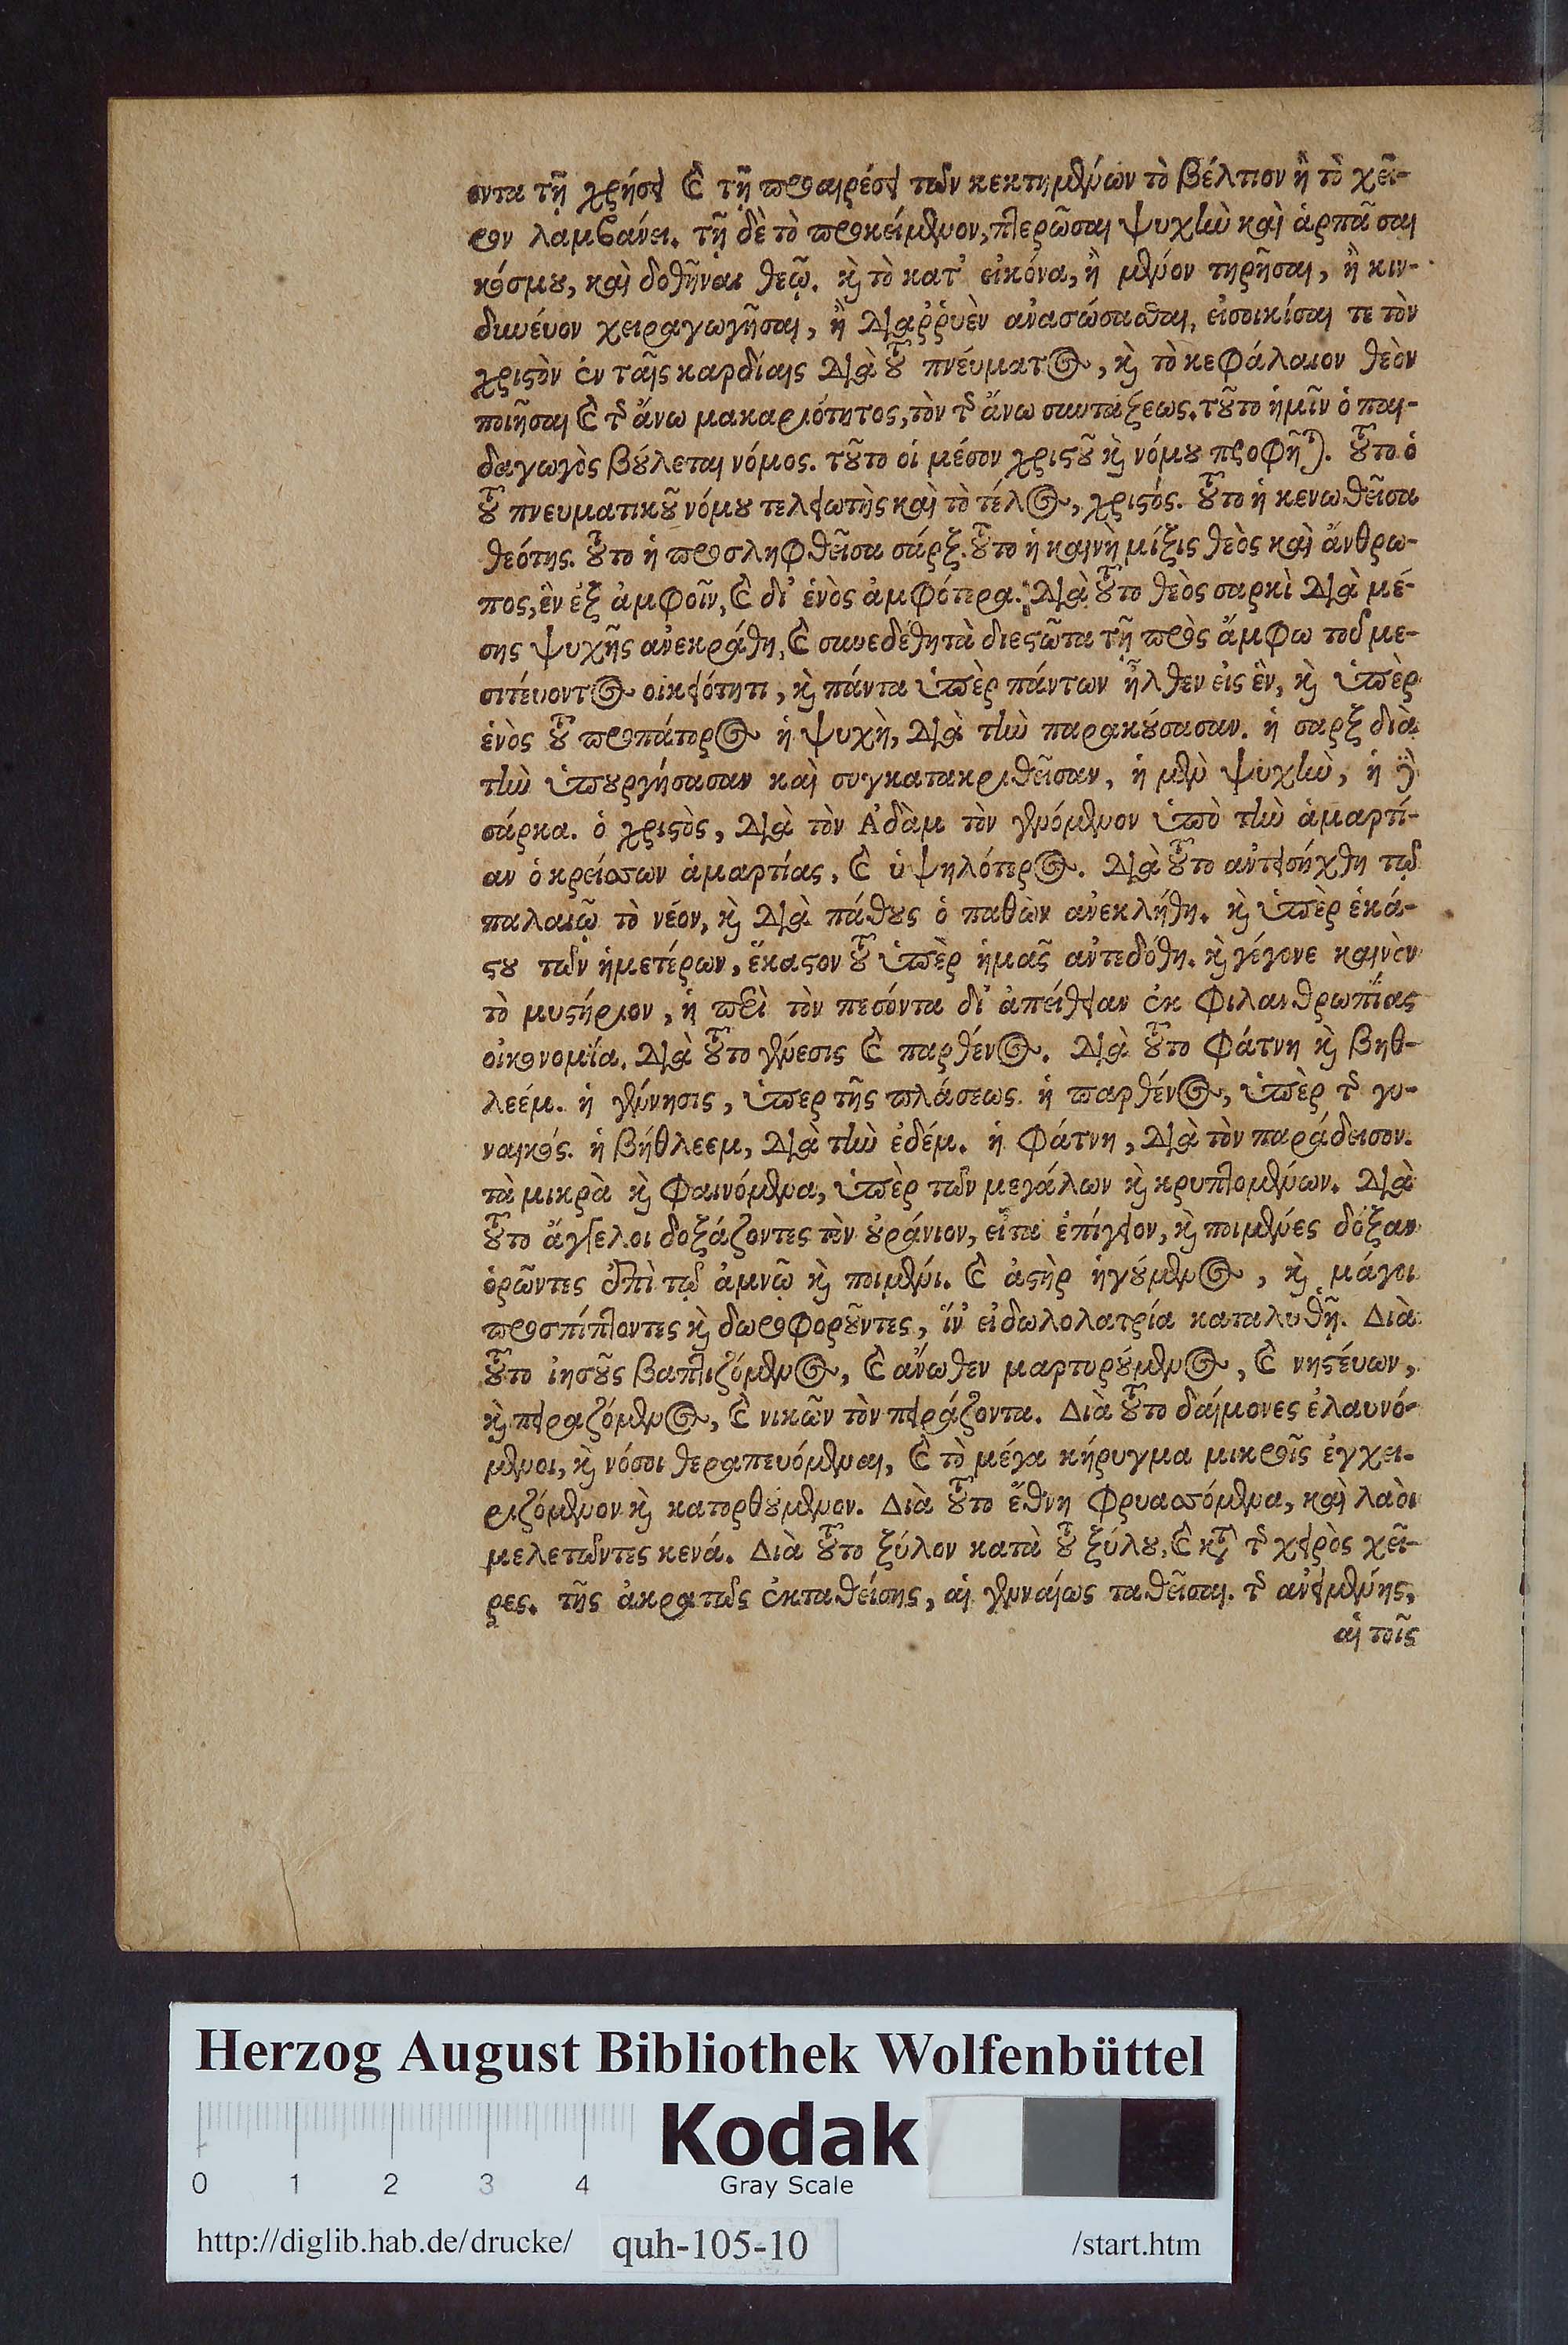 οντα τῇ χρήσει καὶ τῇ προαιρέσει τῶν κεκτημένων τὸ βέλτιον ἢ τὸ χεῖ-
ρον λαμβάνει. τῇ δὲ τὸ προκείμενον, πτερῶσαι ψυχὴν καὶ ἁρπᾶσαι
κόσμου, καὶ δοθῆναι θεῷ. καὶ τὸ κατ' εἰκόνα, ἢ μένον τηρῆσαι, ἢ κιν-
δυνεύον χειραγωγῆσαι, ἢ διαῤῥυὲν ἀνασώσασθαι, εἰσοικίσαι τε τὸν
χριστὸν ἐν ταῖς καρδίαις διὰ τοῦ πνεύματος, καὶ τὸ κεφάλαιον θεὸν
ποιῆσαι καὶ τῆς ἄνω μακαριότητος, τὸν τῆς ἄνω συντάξεως. τοῦτο ἡμῖν ὁ παι-
δαγωγὸς βούλεται νόμος. τοῦτο οἱ μέσον χριστοῦ καὶ νόμου προφῆται. τοῦτο ὁ
τοῦ πνευματικοῦ νόμου τελειωτὴς καὶ τὸ τέλος, χριστός. τοῦτο ἡ κενωθεῖσα
θεότης. τοῦτο ἡ προσληφθεῖσα σάρξ. τοῦτο ἡ καινὴ μίξις θεὸς καὶ ἄνθρω-
πος, ἓν ἐξ ἀμφοῖν, καὶ δι' ἑνὸς ἀμφότερα. διὰ τοῦτο θεὸς σαρκὶ διὰ μέ-
σης ψυχῆς ἀνεκράθη, καὶ συνεδέθη τὰ διεστῶτα τῇ πρὸς ἄμφω τοῦ με-
σιτεύοντος οἰκειότητι, καὶ πάντα ὑπὲρ πάντων ἦλθεν εἰς ἓν, καὶ ὑπὲρ
ἑνὸς τοῦ προπάτορος ἡ ψυχὴ, διὰ τὴν παρακούσασαν. ἡ σαρξ διὰ
τὴν ὑπουργήσασαν καὶ συγκατακριθεῖσαν, ἡ μὲν ψυχὴν, ἡ δὲ
σάρκα. ὁ χριστὸς, διὰ τὸν Ἀδὰμ τὸν γενόμενον ὑπὸ τὴν ἁμαρτί-
αν ὁ κρείσσων ἁμαρτίας, καὶ ὑψηλότερος. διὰ τοῦτο ἀντεισήχθη τῷ
παλαιῷ τὸ νέον, καὶ διὰ πάθους ὁ παθὼν ἀνεκλήθη. καὶ ὑπὲρ ἑκά-
στου τῶν ἡμετέρων, ἕκαστον τοῦ ὑπὲρ ἡμᾶς ἀντεδόθη. καὶ γέγονε καινὸν
τὸ μυστήριον, ἡ περὶ τὸν πεσόντα δι' ἀπείθειαν ἐκ φιλανθρωπίας
οἰκονομία. διὰ τοῦτο γένεσις καὶ παρθένος. διὰ τοῦτο φάτνη καὶ βηθ-
λεέμ. ἡ γέννησις, ὑπερ τῆς πλάσεως. ἡ παρθένος, ὑπὲρ τῆς γυ-
ναικός. ἡ βήθλεεμ, διὰ τὴν ἐδέμ. ἡ φάτνη, διὰ τὸν παράδεισον.
τὰ μικρὰ καὶ φαινόμενα, ὑπὲρ τῶν μεγάλων καὶ κρυπτομένων. διὰ
τοῦτο ἄγγελοι δοξάζοντες τὸν οὐράνιον, εἶτα ἐπίγειον, καὶ ποιμένες δόξαν
ὁρῶντες ἐπὶ τῷ ἀμνῷ καὶ ποιμένι. καὶ ἀστὴρ ἡγούμενος, καὶ μάγοι
προσπίπτοντες καὶ δωροφοροῦντες, ἵν' εἰδωλολατρία καταλυθῇ. Διὰ
τοῦτο ἰησοῦς βαπτιζόμενος, καὶ ἄνωθεν μαρτυρούμενος, καὶ νηστέυων,
καὶ πειραζόμενος, καὶ νικῶν τὸν πειράζοντα. Διὰ τοῦτο δαίμονες ἐλαυνό-
μενοι, καὶ νόσοι θεραπευόμεναι, καὶ τὸ μέγα κήρυγμα μικροῖς ἐγχει-
ριζόμενον καὶ κατορθούμενον. Διὰ τοῦτο ἔθνη φρυασσόμενα, καὶ λαὸι
μελετῶντες κενά. Διὰ τοῦτο ξύλον κατὰ τοῦ ξύλου, καὶ κατὰ τῆς χειρὸς χεῖ-
ρες. τῆς ἀκρατῶς ἐκταθείσης, αἱ γενναίως ταθεῖσαι. τῆς ἀνειμένης,
αἱ τοῖς
Herzog August Bibliothek Wolfenbüttel
Kodak
Gray Scale
0 1 2 3 4
http://diglib.hab.de/drucke/ quh-105-10 /start.htm